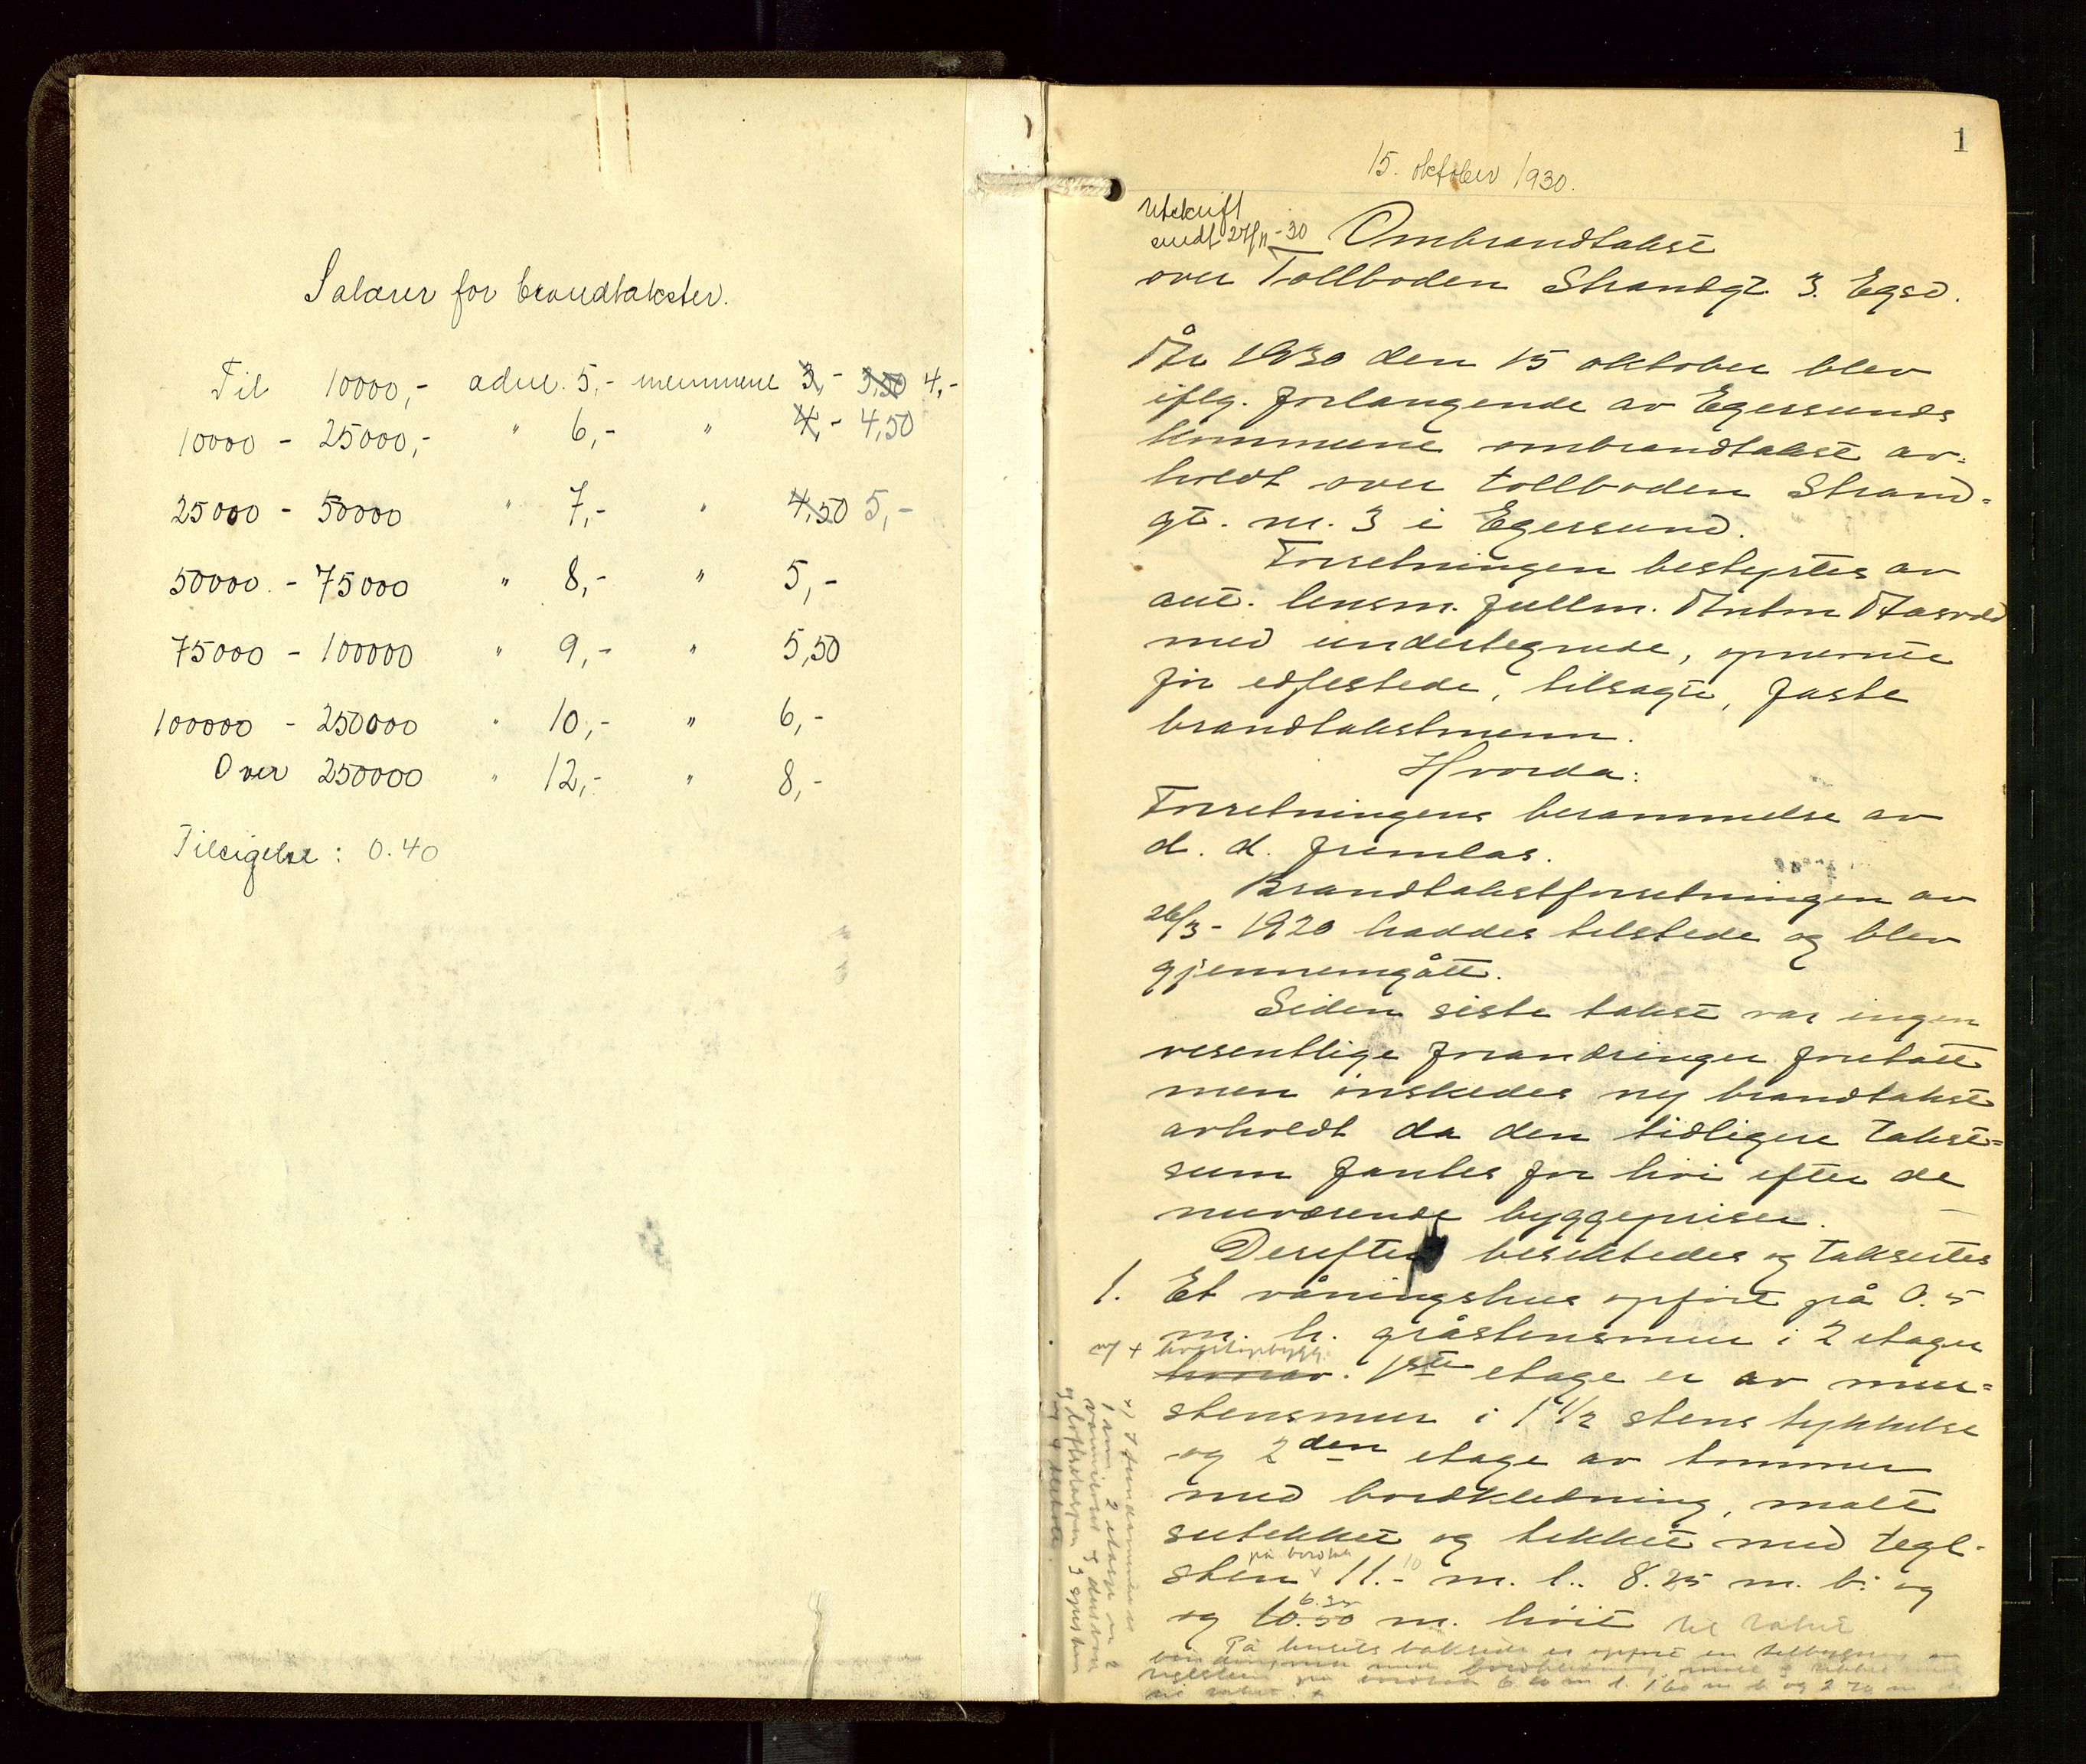 Salærer for brandtakster.
Til 10000,- adm. 5,- mennene 3,- 3,50 4,-
10000 - 25000,- " 6,- " 4,- 4,50
25000 - 50000 " 7,- " 4,50 5,-
50000 - 75000 " 8,- " 5,-
75000 - 100000 " 9,- " 5,50
100000 - 250000 " 10,- " 6,-
Over 250000 " 12,- " 8,-
Tilsigelse: 0.40
1
15. oktober 1930.
Utskrift
sendt 27/11-30
Ombrandtakst
over Tollboden Strandgt. 3. Egsd.
År 1930 den 15 oktober blev
iflg. forlangende av Egersunds
kommune ombrandtakst av-
holdt over tollboden Strand-
gt. nr. 3 i Egersund.
Forretningen bestyrtes av
aut. lensm. fullm. Anton Aasvold
med undertegnede, opnevnte
før edfestede, tilsagte, faste
brandtakstmenn.
Hvorda:
Forretningens berammelse av
d. d. fremlas.
Brandtakstforretningen av
26/3- 1920 haddes tilstede og blev
gjennemgått.
Siden siste takst var ingen
vesentlige forandringer foretatt
men ønskedes ny brandtakst
avholdt da den tidligere takst-
sum fantes for høi efter de
nuværende byggepriser.
Derefter besiktedes og takseretes
1. Et våningshus opført på 0.5
m. h. gråstensmur i 2 etager
1ste etage er av mur-
stensmur i 1 1/2 stens tykkelse
og 2den etage av tømmer
med bordkledning, malt
sutekket og tekket med tegl-
sten på bordtak 11.10 m. l. 8.25 m. b. og
og 10.50 m. høit til raftet
På husets bakside er opført en tilbygning av
bindingsverk med bordkledning, malt og tekket med
teglsten på bordtak
x) I fundamentet
1 rom 2 etage er 2
værelser og
og 3 spiskam